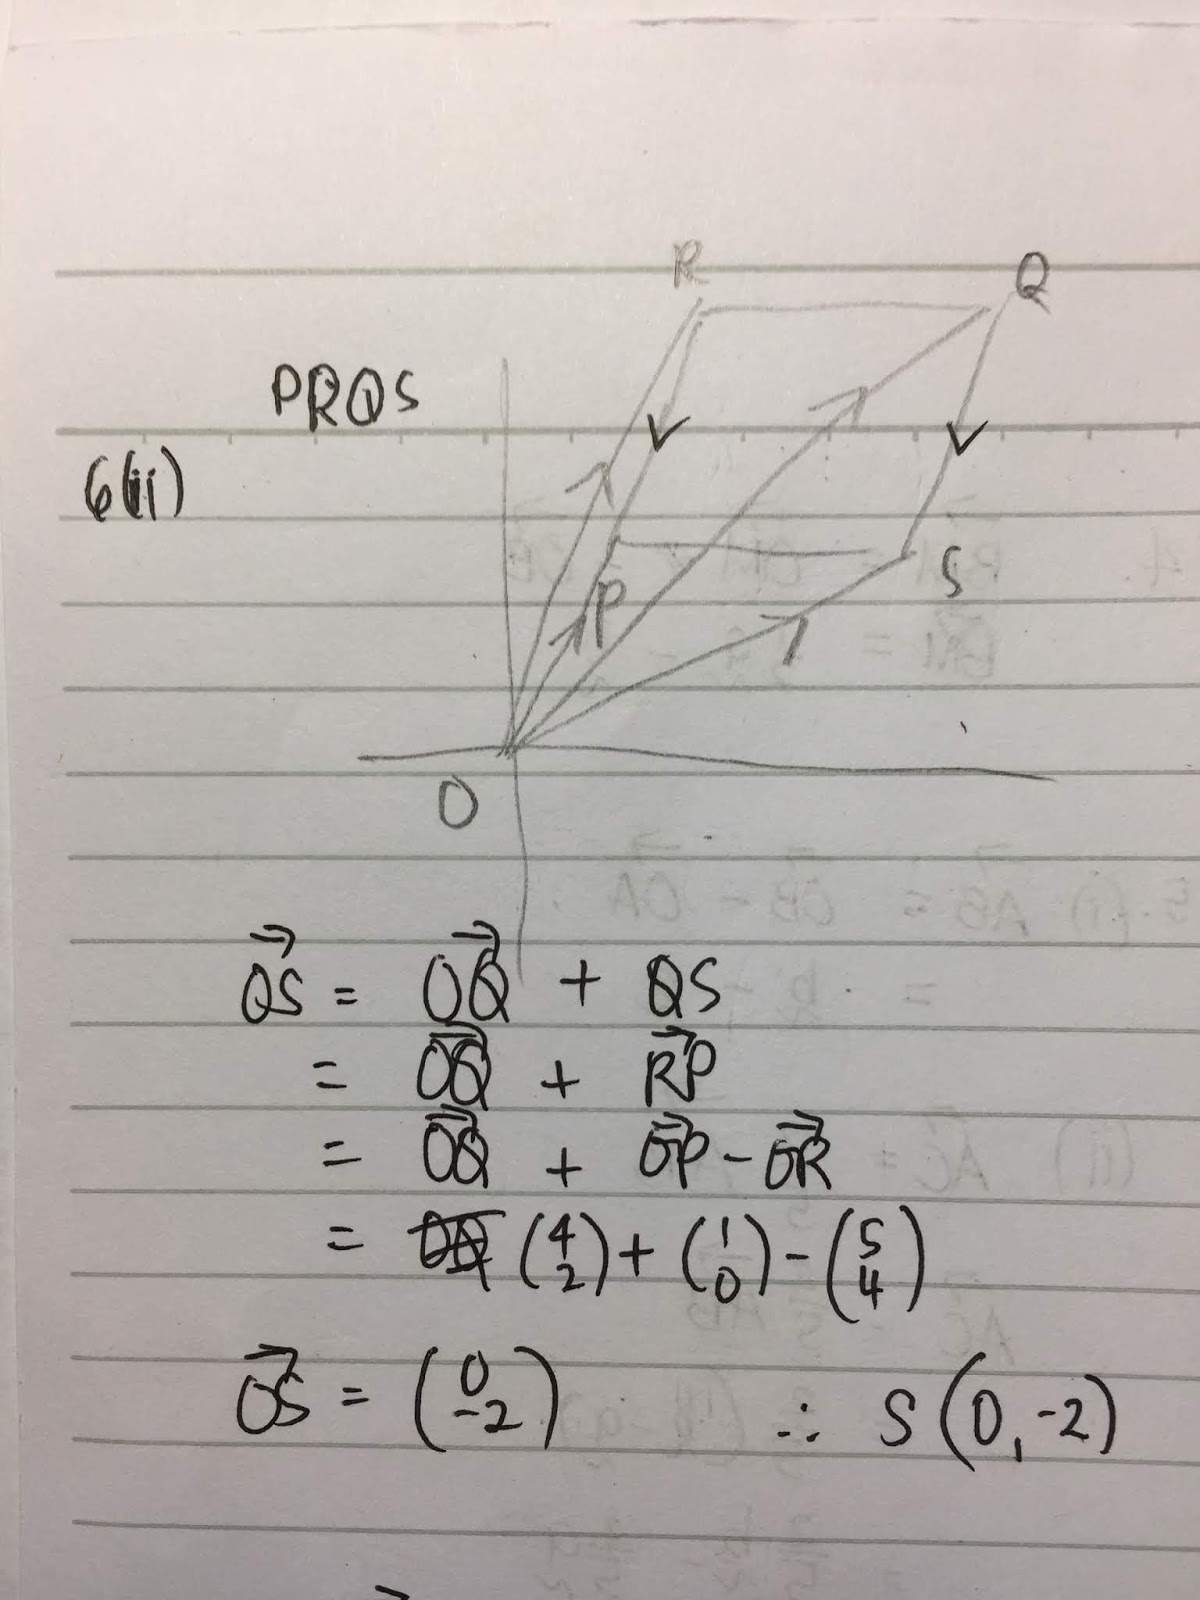 R Q
PRQS
6(ii)
P S
O
OS = OQ + QS
= OQ + RP
= OQ + OP - OR
= (4 2) + (1 0) - (5 4)
OS = (0 -2) ∴ S(0, -2)